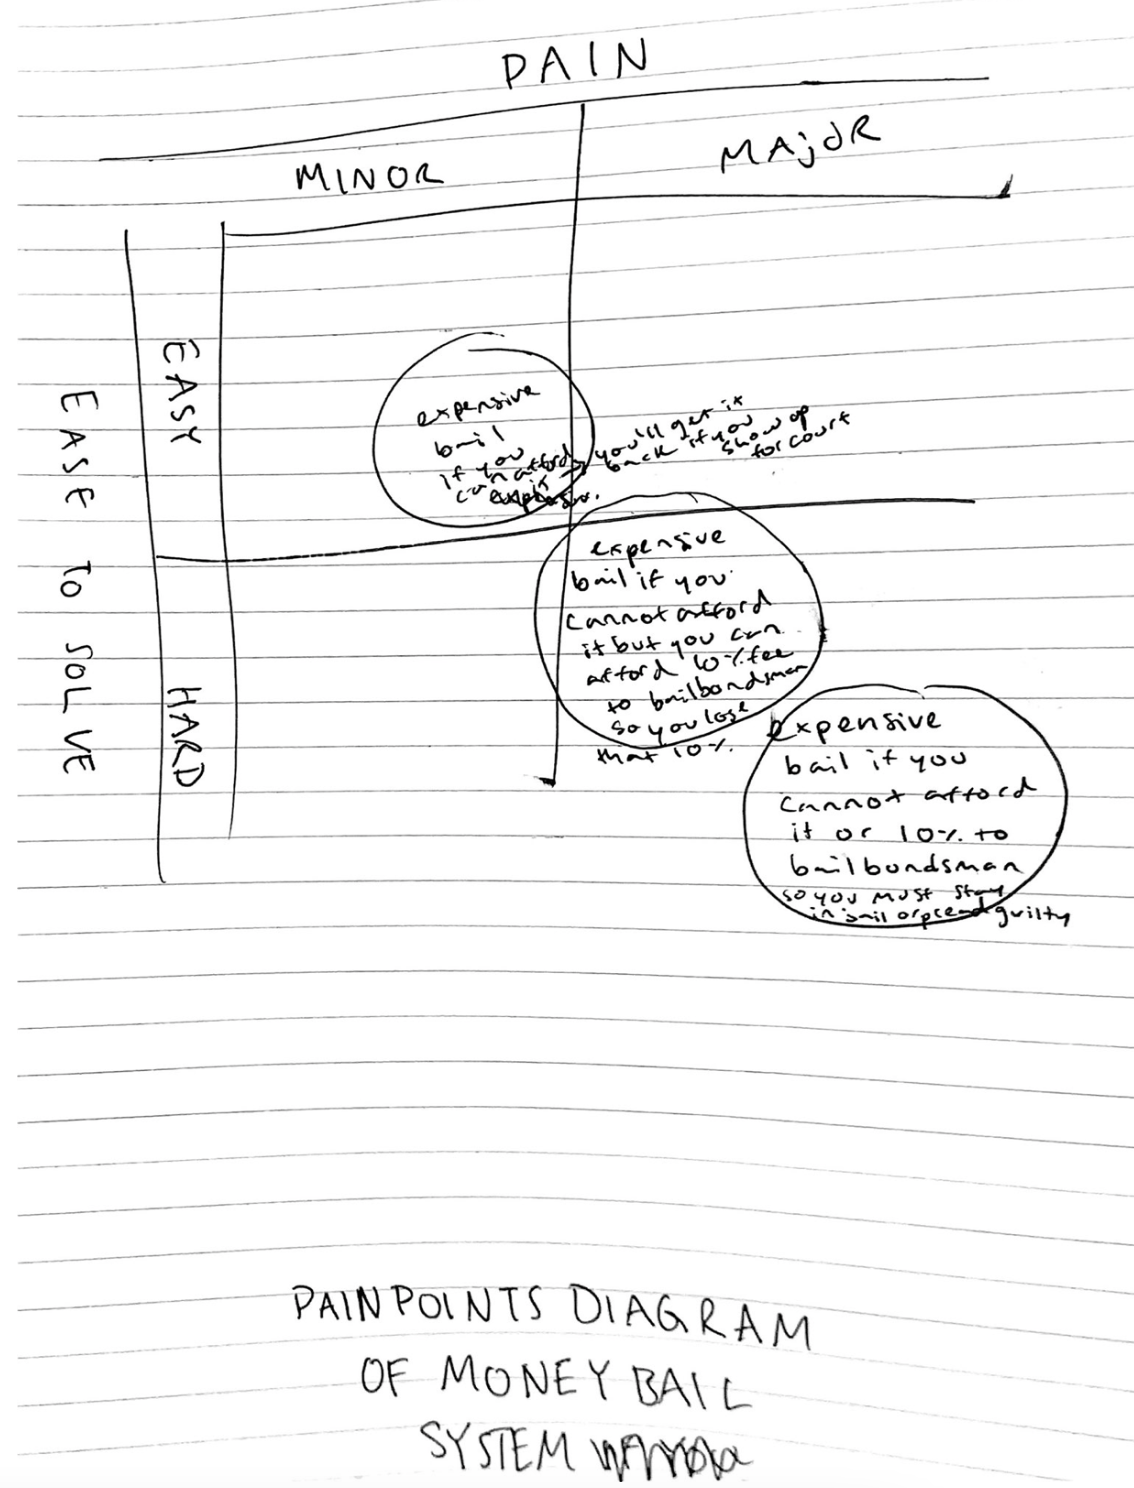 PAIN
MINOR
MAJOR
EASE TO SOLVE
EASY
HARD
expensive
bail
if you
can afford
it → you'll get it
back if you
show up
for court
expensive
bail if you
cannot afford
it but you can
afford 10% fee
to bailbondsman
so you lose
that 10%.
expensive
bail if you
cannot afford
it or 10% to
bailbondsman
so you must stay
in jail or plead guilty
PAINPOINTS DIAGRAM
OF MONEY BAIL
SYSTEM